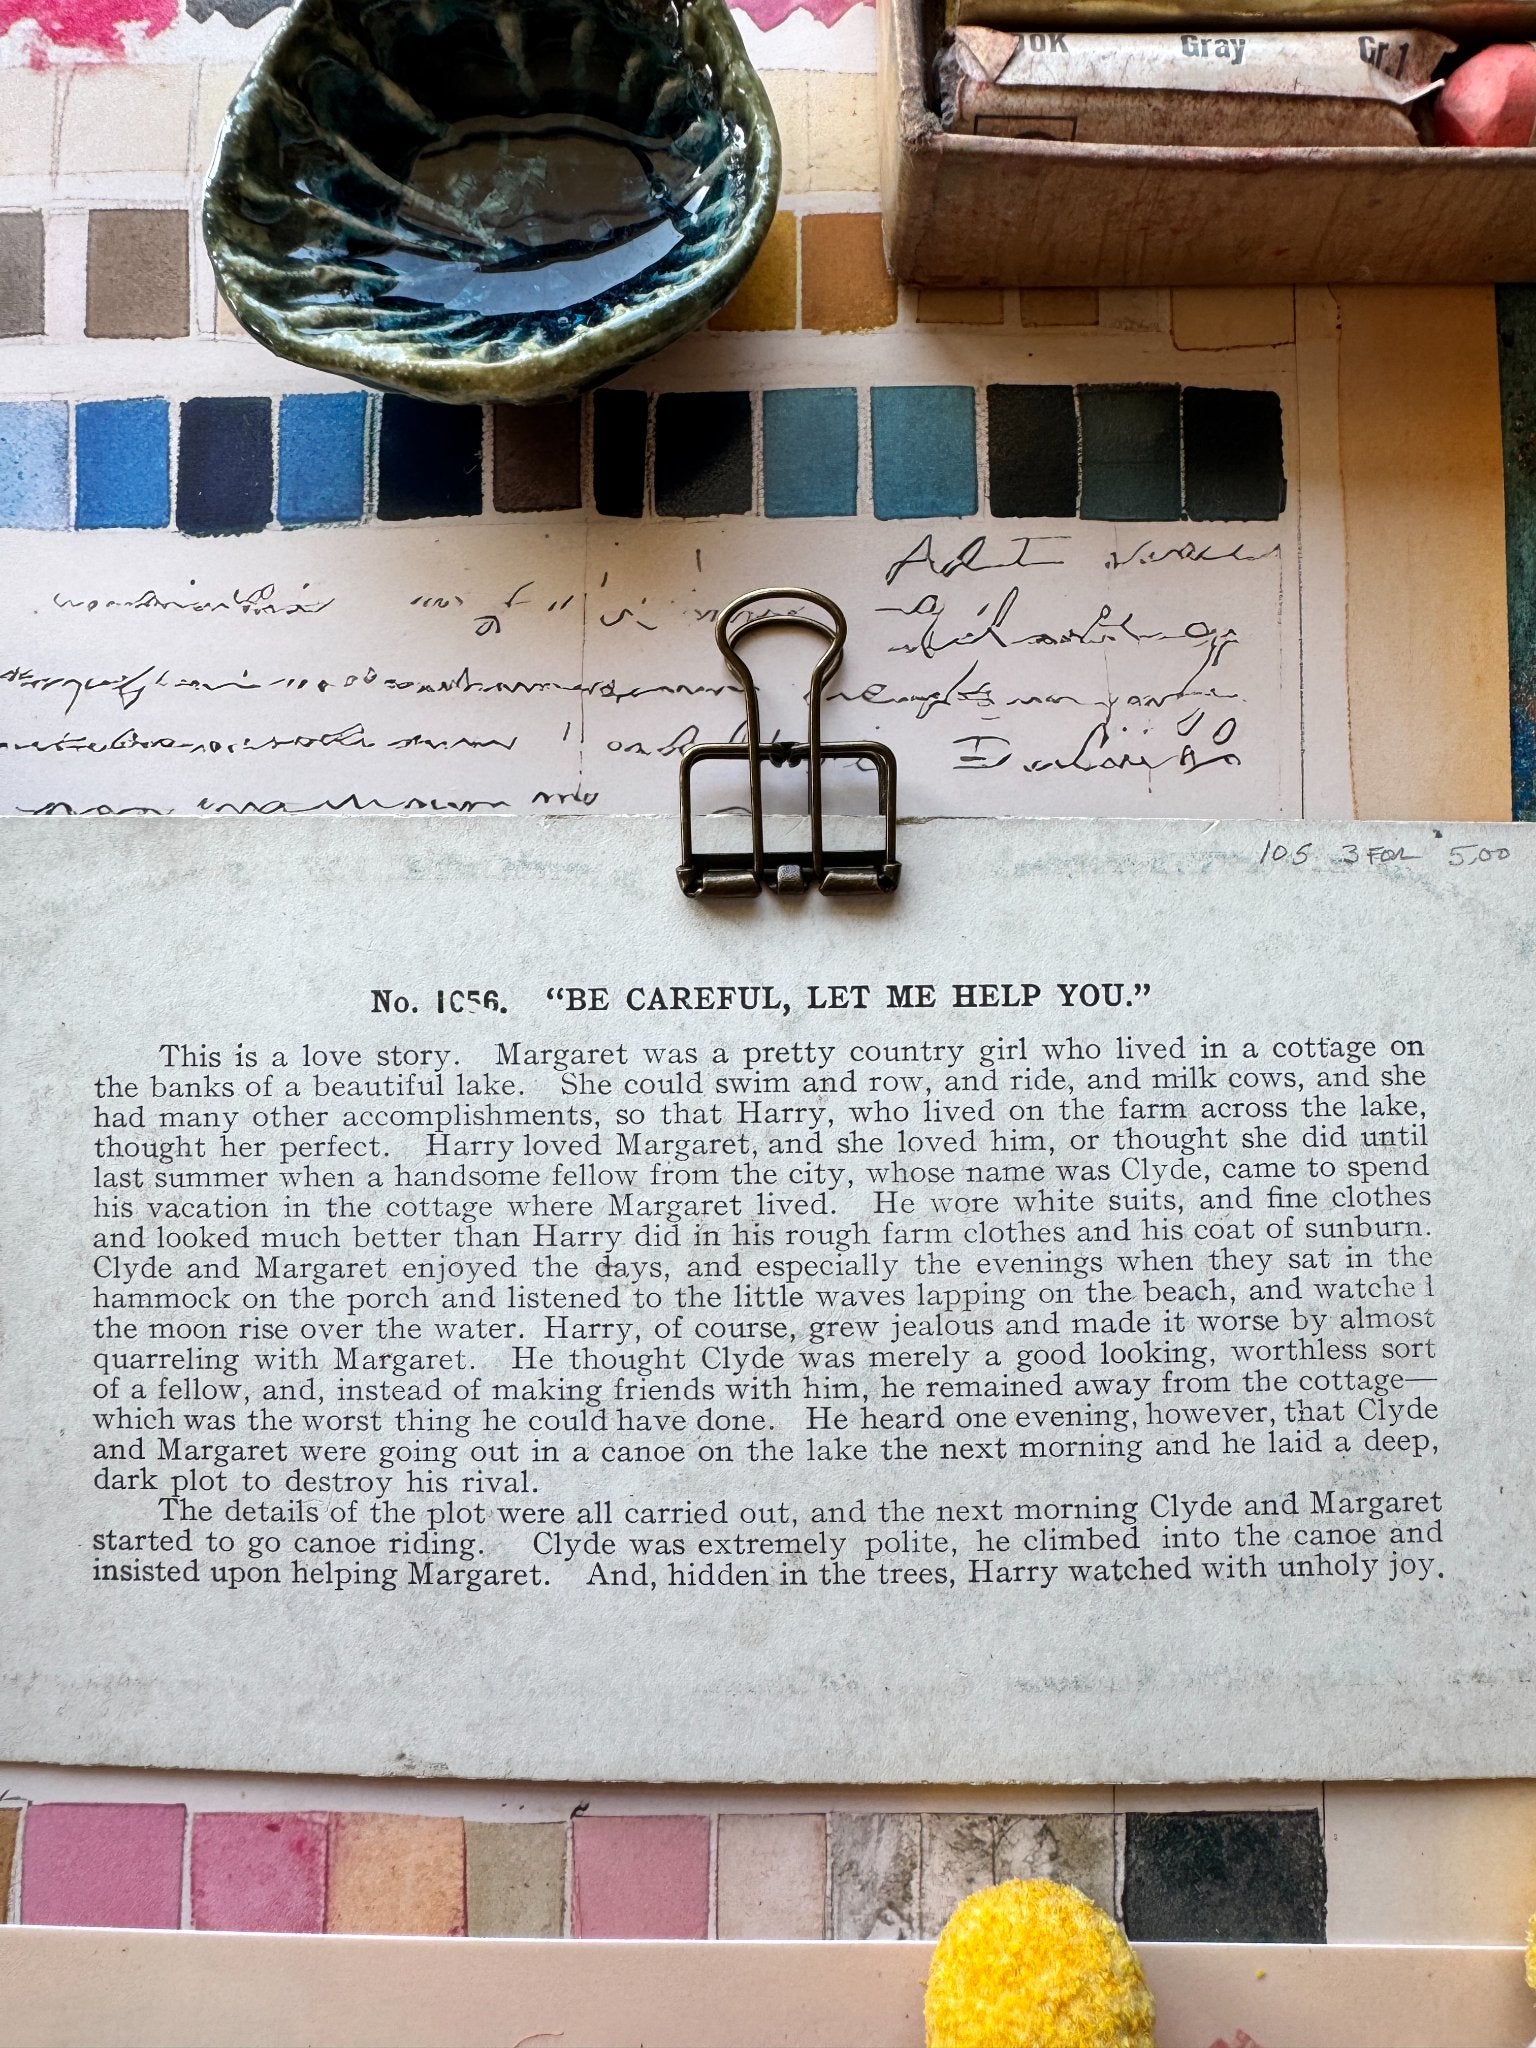 Gray
105 3 FOR 5.00
No. 1056. “BE CAREFUL, LET ME HELP YOU.”
This is a love story. Margaret was a pretty country girl who lived in a cottage on
the banks of a beautiful lake. She could swim and row, and ride, and milk cows, and she
had many other accomplishments, so that Harry, who lived on the farm across the lake,
thought her perfect. Harry loved Margaret, and she loved him, or thought she did until
last summer when a handsome fellow from the city, whose name was Clyde, came to spend
his vacation in the cottage where Margaret lived. He wore white suits, and fine clothes
and looked much better than Harry did in his rough farm clothes and his coat of sunburn.
Clyde and Margaret enjoyed the days, and especially the evenings when they sat in the
hammock on the porch and listened to the little waves lapping on the beach, and watched
the moon rise over the water. Harry, of course, grew jealous and made it worse by almost
quarreling with Margaret. He thought Clyde was merely a good looking, worthless sort
of a fellow, and, instead of making friends with him, he remained away from the cottage—
which was the worst thing he could have done. He heard one evening, however, that Clyde
and Margaret were going out in a canoe on the lake the next morning and he laid a deep,
dark plot to destroy his rival.
The details of the plot were all carried out, and the next morning Clyde and Margaret
started to go canoe riding. Clyde was extremely polite, he climbed into the canoe and
insisted upon helping Margaret. And, hidden in the trees, Harry watched with unholy joy.